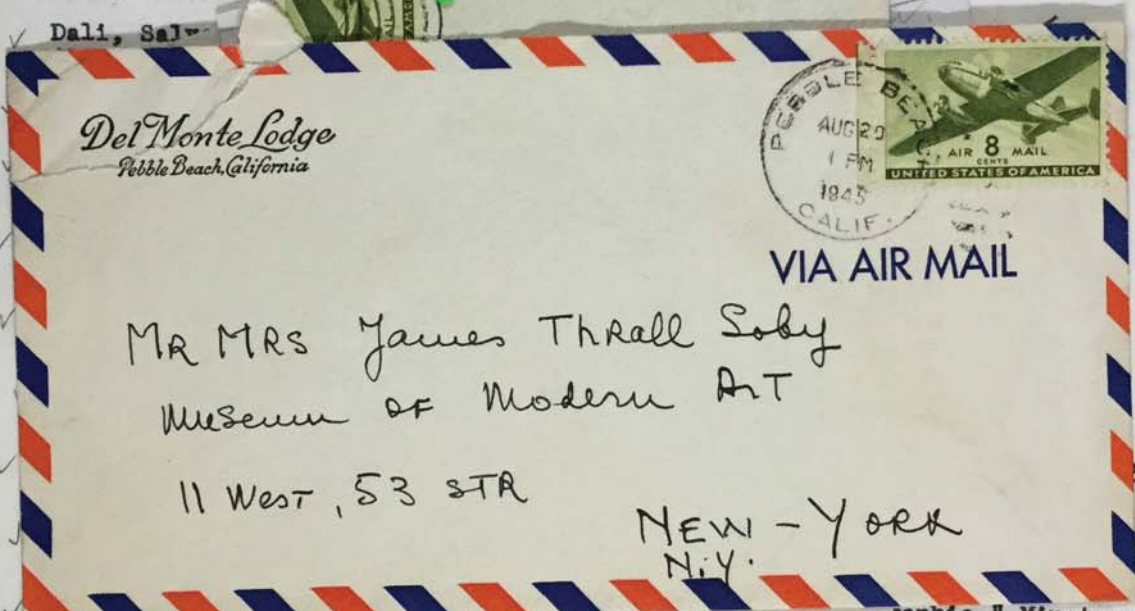 Dali,
Del Monte Lodge
Pebble Beach, California
PEBBLE BEACH
AUG 20
1 PM
1945
CALIF.
AIR 8 MAIL
CENTS
UNITED STATES OF AMERICA
VIA AIR MAIL
MR MRS James Thrall Soby
Museum OF Modern ArT
11 West, 53 STR
NEW-YORK
N.Y.